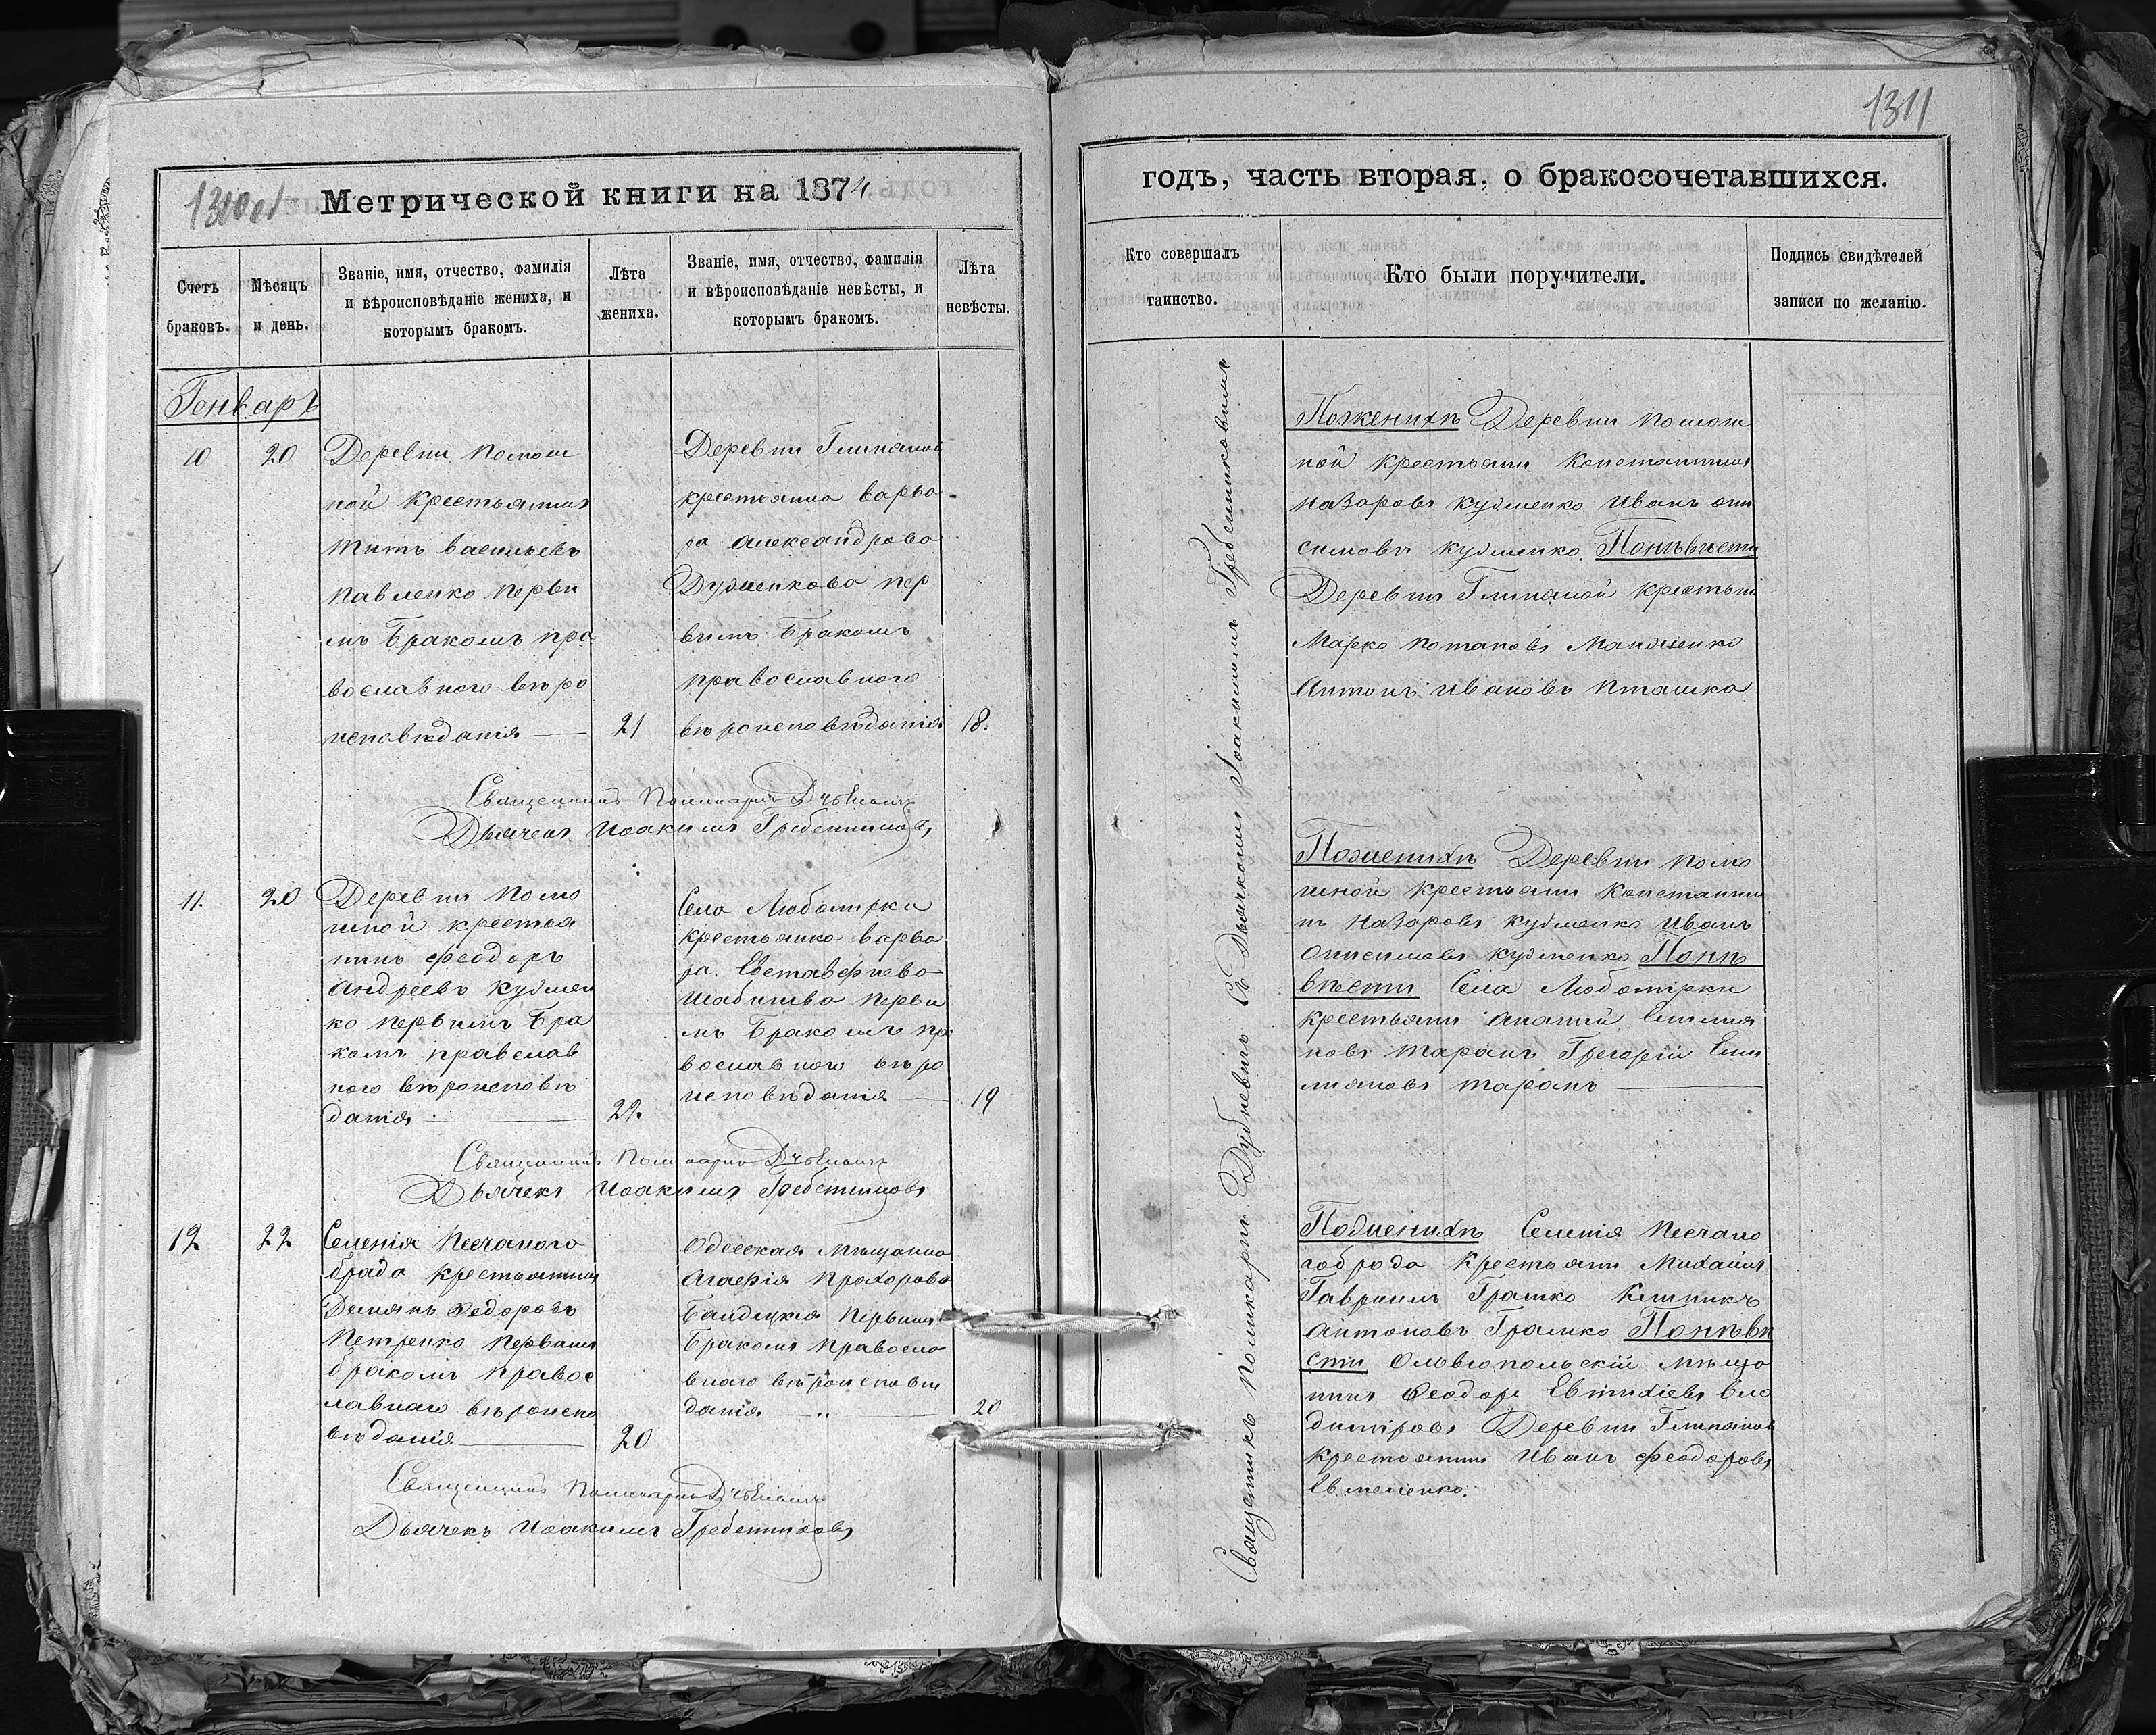 1310об
Метрической книги на 1874
Счетъ браковъ.
Мѣсяцъ и день.
Званіе, имя, отчество, фамилія
и вѣроисповѣданіе жениха, и
которымъ бракомъ.
Лѣта
жениха.
Званіе, имя, отчество, фамилія
и вѣроисповѣданіе невѣсты, и
которымъ бракомъ.
Лѣта
невѣсты.
Генварь
10
20
Деревни Помош
ной крестьянинъ
Титъ Васильевъ
Павленко первы
мъ бракомъ пра
вославного вѣро
исповѣданія
21
Деревни Глиняной
крестьянка Варва
ра Александрова
первымъ бракомъ
православного
вѣроисповѣданія
18.
Священникъ Поликарпъ
Дьячекъ Иоакимъ Гребенниковъ
11.
20
Деревни Помо
шной крестья
нинъ Феодоръ
Андреевъ Кузмен
ко первымъ бра
комъ правслав
ного вѣроисповѣ
данія
22.
Села Любомирки
крестьянка Варва
ра Евставфиева
первы
мъ бракомъ пра
вославного вѣро
исповѣданія
19
Священникъ Поликарпъ
Дьячекъ Иоакимъ Гребенниковъ
12
22
Селенія Песчаного
брода крестьянинъ
Демянъ Федоровъ
Петренко первымъ
бракомъ правос
лавнаго вѣроиспо
вѣданія
20
Одесская мѣщанка
Агафія Прохорова
первымъ
бракомъ правосла
внаго вѣроисповѣ
данія „
20
Священникъ Поликарпъ
Дьячекъ Иоакимъ Гребенниковъ
1311
годъ, часть вторая, о бракосочетавшихся.
Кто совершалъ
таинство.
Кто были поручители.
Подпись свидѣтелей
записи по желанію.
Священникъ Поликарпъ Дубневичъ Съ Дьячкомъ Іоакимомъ Гребенниковымъ
Поженихѣ Деревни Помош
ной крестьяни Константинъ
Назаровъ Кузменко Иванъ Они
симовъ Кузменко Поневѣсти
Деревни Глиняной крестьяни
Марко Потаповъ
Антонъ Ивановъ Пташка
Поженихѣ Деревни Помо
шной крестьяни Константи
нъ Назаровъ Кузменко Иванъ
Онисимовъ Кузменко Поне
вѣсти Села Любомірки
крестьяни Ананій Емилия
новъ Таранъ Григорій Еми
лияновъ Таранъ
Поженихѣ Селенія Песчано
го брода крестьяни Михаилъ
Гавриилъ Грамко
Антоновъ Грамко Поневѣ
сти Ольвіопольскій мѣща
нинъ Феодоръ Евтихіевъ Вла
диміровъ Деревни Глиняной
крестьянинъ Иванъ Феодоровъ
Евмененко.